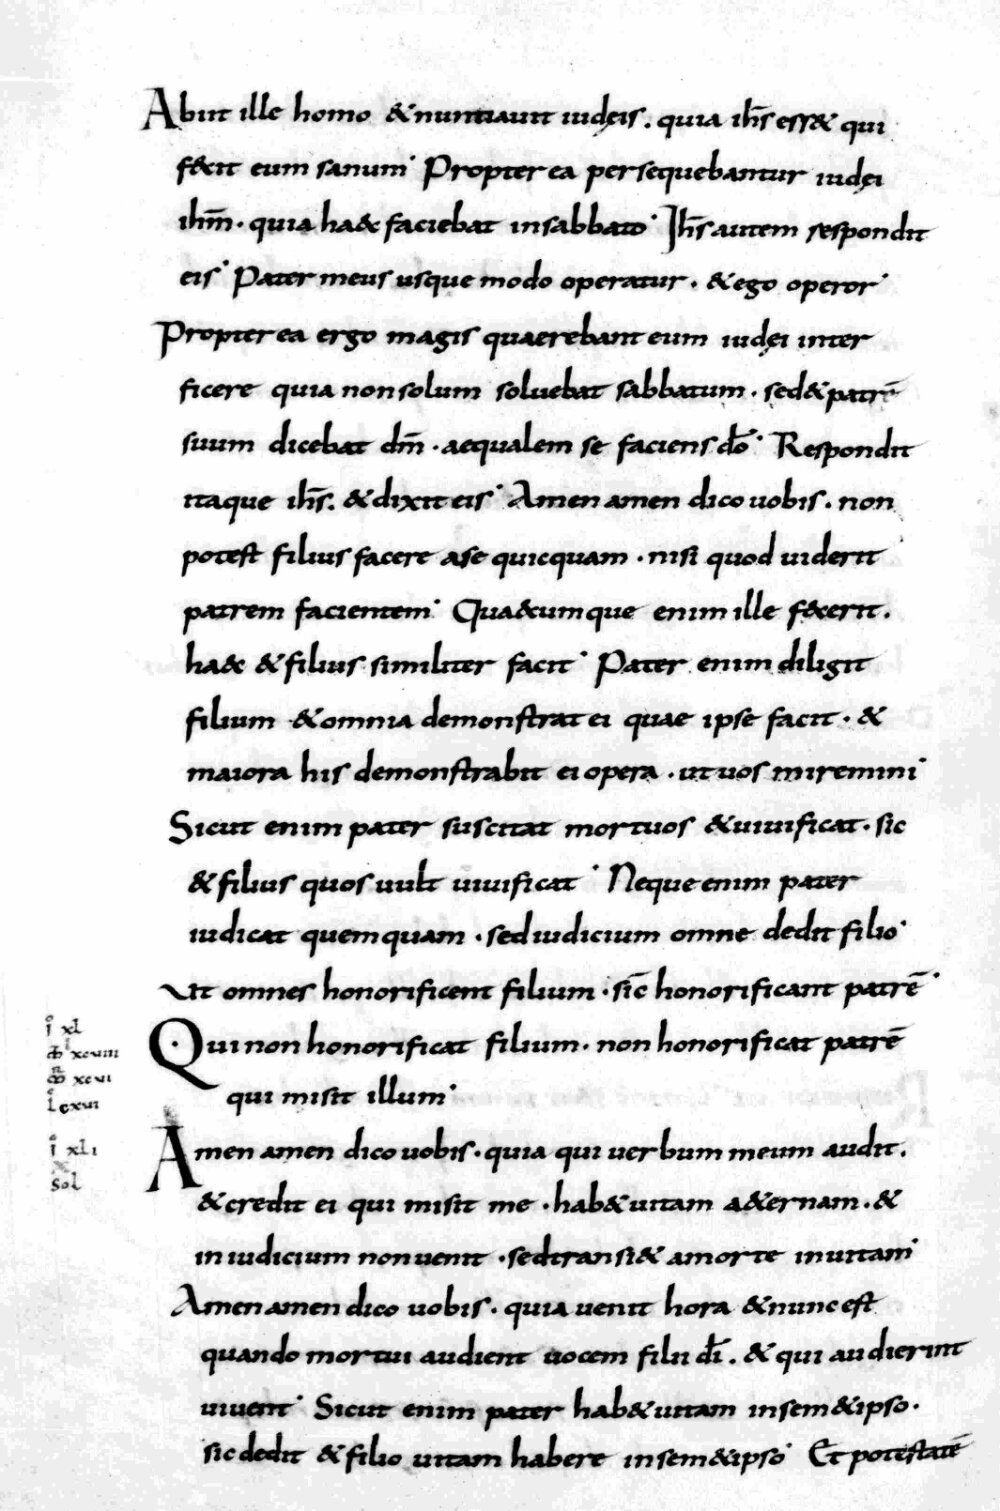 Abiit ille homo & nuntiauit iudęis. quia ih̅s ess& qui
f&cit eum sanum· Propterea persequebantur iudęi
ihm̅· quia ha&c faciebat insabbato· Ih̅s autem respondit
eis· Pater meus usque modo operatur· & ego operor·
Propterea ergo magis quaerebant eum iudęi inter
ficere quia non solum soluebat sabbatum· sed & patrē
suum dicebat dm̅· aequalem se faciens do̅· Respondit
itaque ih̅s. & dixit eis· Amen amen dico uobis. non
potest filius facere ase quicquam· nisi quod uiderit
patrem facientem· Qua&cumque enim ille f&cerit.
ha&c & filius similiter facit· Pater enim diligit
filium & omnia demonstrat ei quae ipse facit· &
maiora his demonstrabit ei opera· ut uos miremini·
Sicut enim pater suscitat mortuos & uiuificat· sic
& filius quos uult uiuificat· Neque enim pater
iudicat quemquam· sed iudicium omne dedit filio·
Ut omnes honorificent filium· sic̅ honorificant patrē·
Qui non honorificat filium· non honorificat patrē
i xl
xcviii
xcvi
lcxvi
qui misit illum·
i xli
sol
Amen amen dico uobis· quia qui uerbum meum audit.
& credit ei qui misit me· hab& uitam a&ernam· &
in iudicium non uenit· sed transi& amorte inuitam·
Amen amen dico uobis· quia uenit hora & nunc est
quando mortui audient uocem filii di̅. & qui audierint
uiuent· Sicut enim pater hab& uitam insem&ipso·
sic dedit & filio uitam habere insem&ipso· Et potestatē